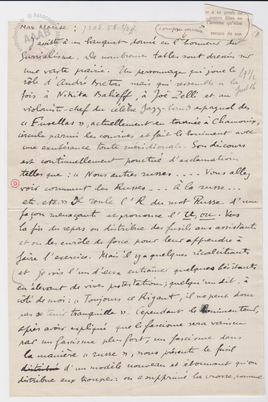 Max Morise :
J'assiste à un banquet donné en l'honneur du
Surréalisme. De nombreuses tables sont dressées sur
une vaste prairie. Un personnage qui joue le
d'André Breton mais qui ressemble à la
fois, à Nikita Balieff, à Joe Zelli et au
violoniste-chef du célèbre Jazz-band espagnol des
« Fusellas », actuellement en tournée à Chamonix,
circule parmi les convives et fait le boniment avec
une exubérance toute méridionale. Son discours
est continuellement ponctué d'exclamations
telles que : « Nous autres russes ..... Vous allez
voir comment les Russes .... A la russe...
etc. etc. » Il roule l'R du mot Russe d'une
façon menaçante et prononce l'U, ou. Vers
la fin du repas on distribue des fusils aux assistants
et on les enrôle de force pour leur apprendre à
faire l'exercice. Mais il y a quelques récalcitrants
et je vois l'un d'eux entraîner quelques hésitants
en élevant de vives protestations ; quelqu'un dit, à
côté de moi : « Toujours ce Rigaut, il ne peut donc
pas se tenir tranquille ». Cependant le bonimenteur,
après avoir expliqué que le fascisme sera vaincu
par un fascisme plus fort, un fascisme dans
la manière « russe », nous présente le fusil
d'un modèle nouveau et étonnant qu'on
distribue aux troupes : on a supprimé la crosse, comme